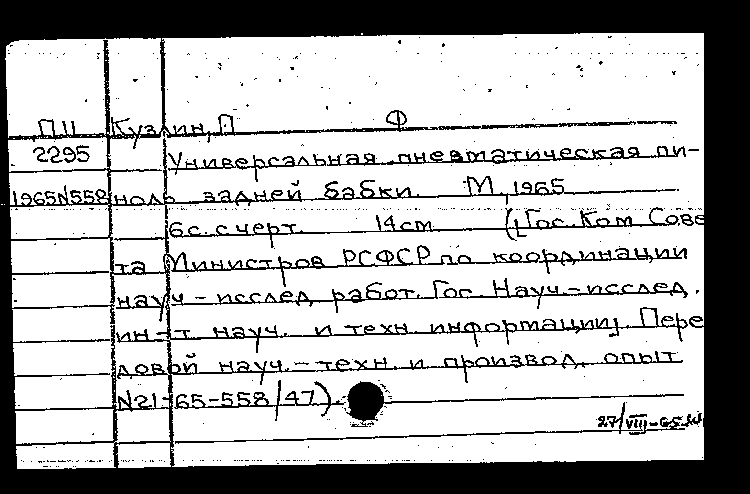 П11 Кузлин, П Ф
2295 Универсальная пневматическая пи-
1965N558 ноль задней бабки М, 1965
6с. с черт. 14см (Гос. Ком Сове
та Министров РСФСР по координации
науч-исслед работ. Гос. Науч.-исслед.
ин-т науч. и техн информации] Пере
довой науч.-техн. и производ. опыт
N21-65-558/47)
27/VIII-65